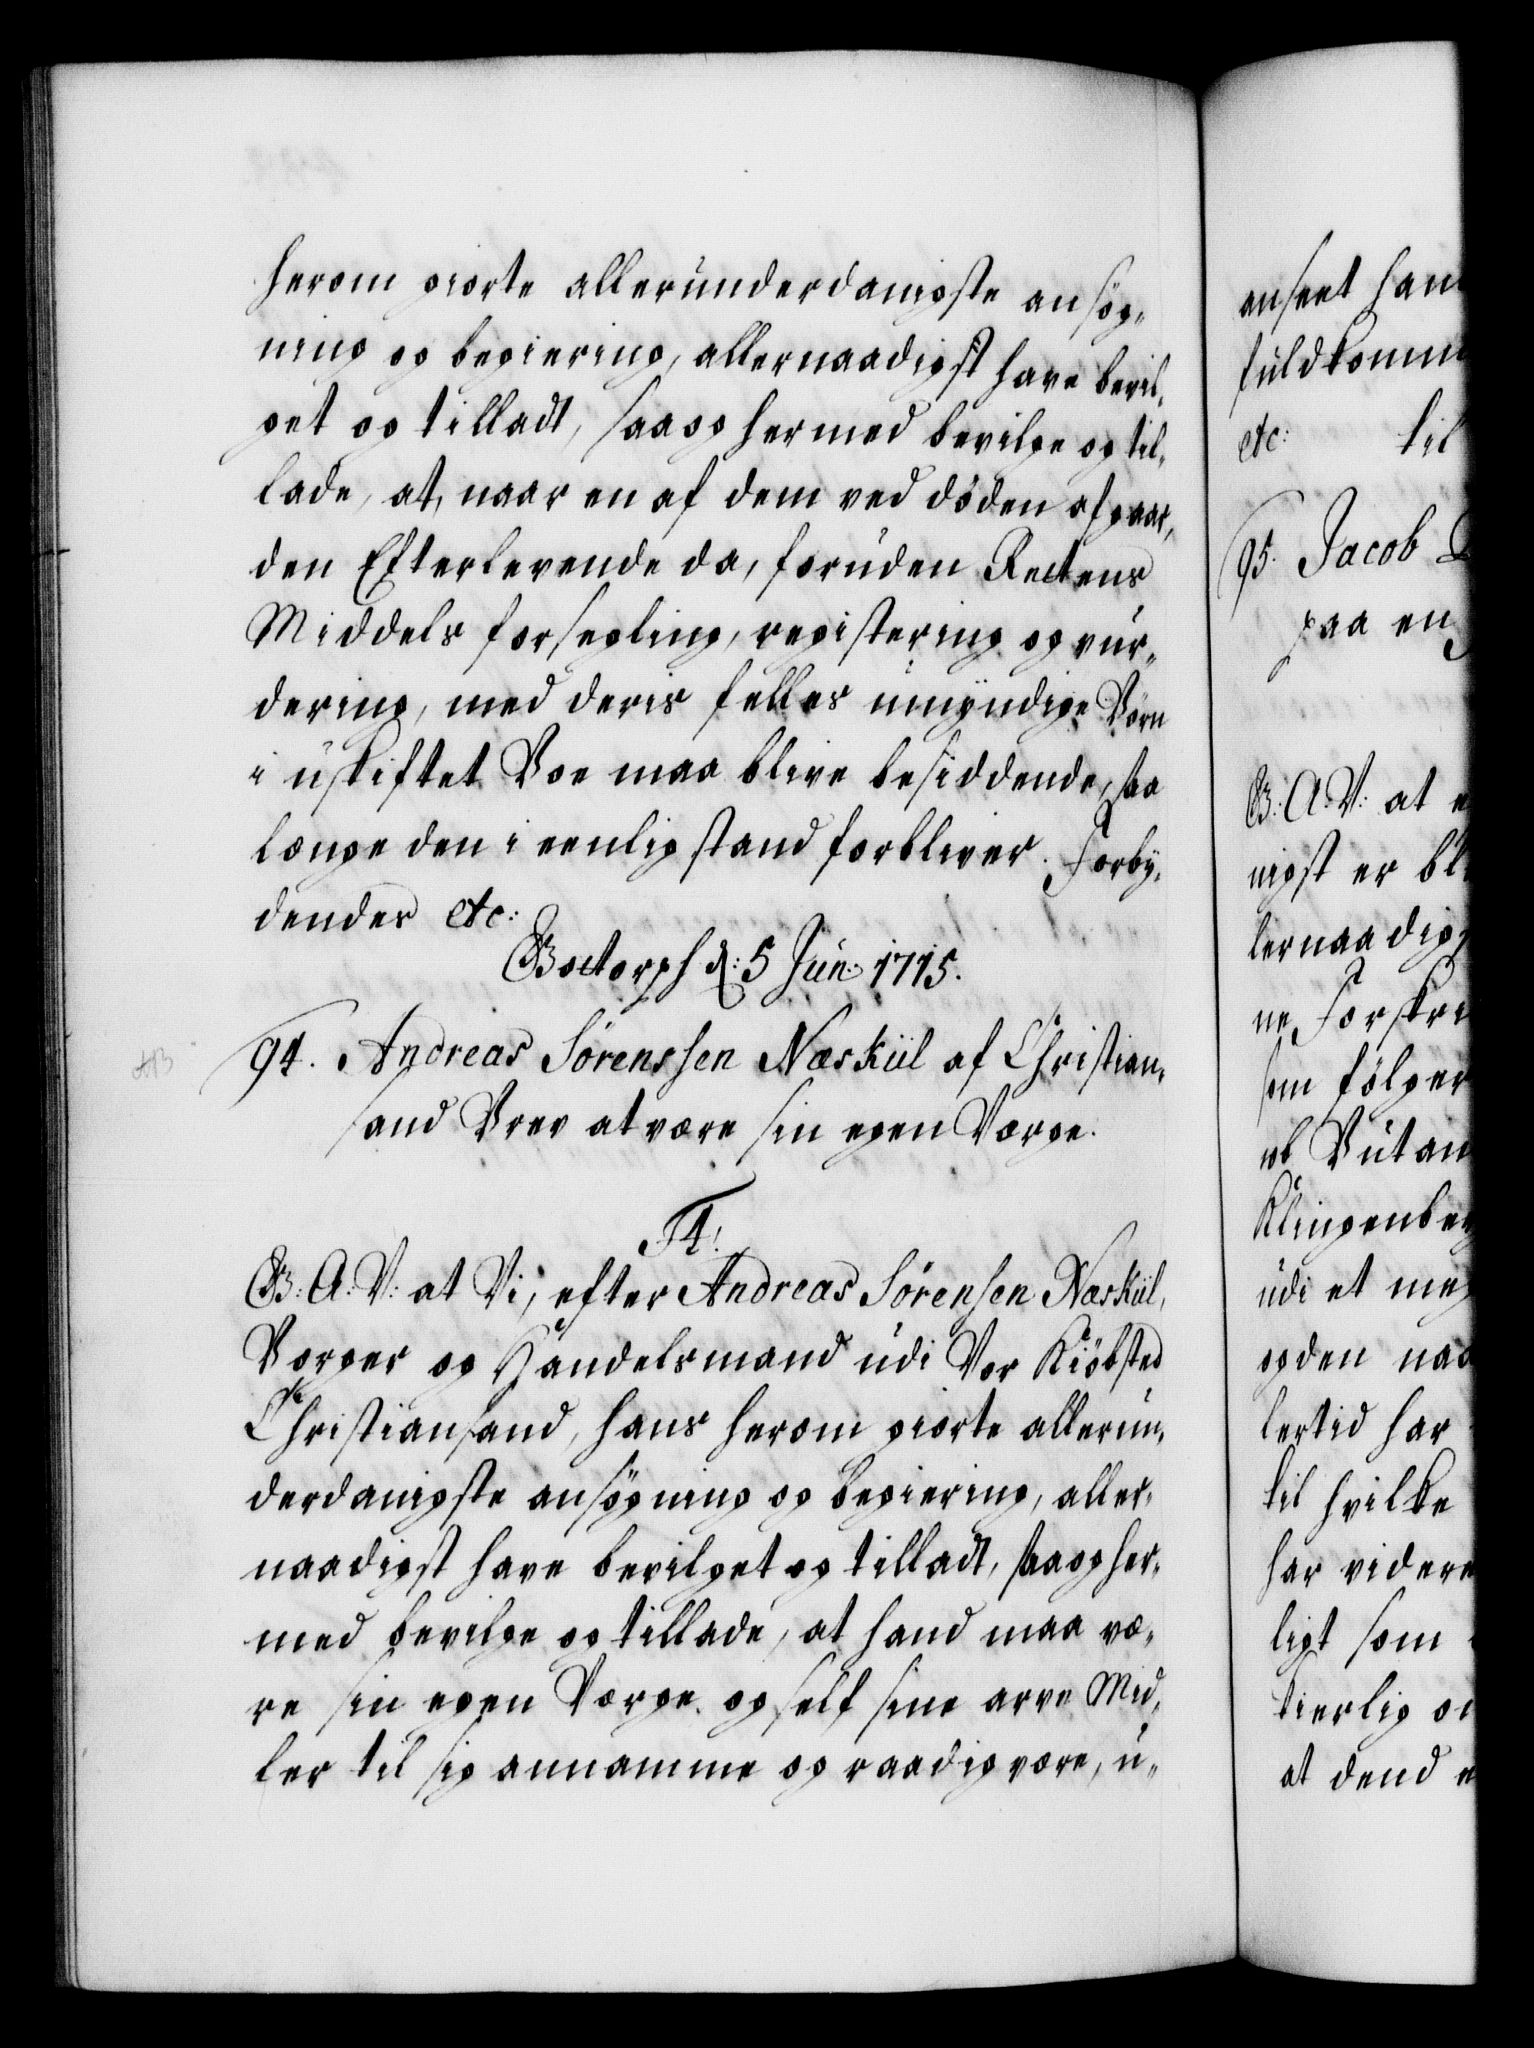 herom giorte allerunderdanigste ansög-
ning og begiering, allernaadigst have bevil-
get og tilladt, saa og hermed bevilge og til-
lade, at, naar en af dem ved döden afgaar,
den Efterlevende da, foruden Rettens
Middels forsegling, registering og vur-
dering, med deris felles umÿndige Börn
i uskiftet Boe maa blive besiddende, saa
længe den i eenlig stand forbliver. Forbÿ-
dendes etc:
Gottorph d: 5 Jun: 1715.
94. Andreas Sörenssen Næskül af Christian-
sand Brev at være sin egen Værge.
F4.
G: A: V: at Vi, efter Andreas Sörensen Næskül,
Borger og Handelsmand udi Vor Kiöbsted
Christiansand, hans herom giorte allerun-
derdanigste ansögning og begiering, aller-
naadigst have bevilget og tilladt, saa og her-
med bevilge og tillade, at hand maa væ-
re sin egen Værge og self sine arve Mid-
ler til sig annamme og raadig være, u-
anseet han
fuldkomm
etc: til
95. Jacob
paa en
G: A: V: at e
nigst er bl
lernaadig
ne Forskri
som fölger
ob Butan
Klingenberg
udi et meg
og den naa
lertid har
til hvilke
har videre
ligt som
kierlig
at dend e